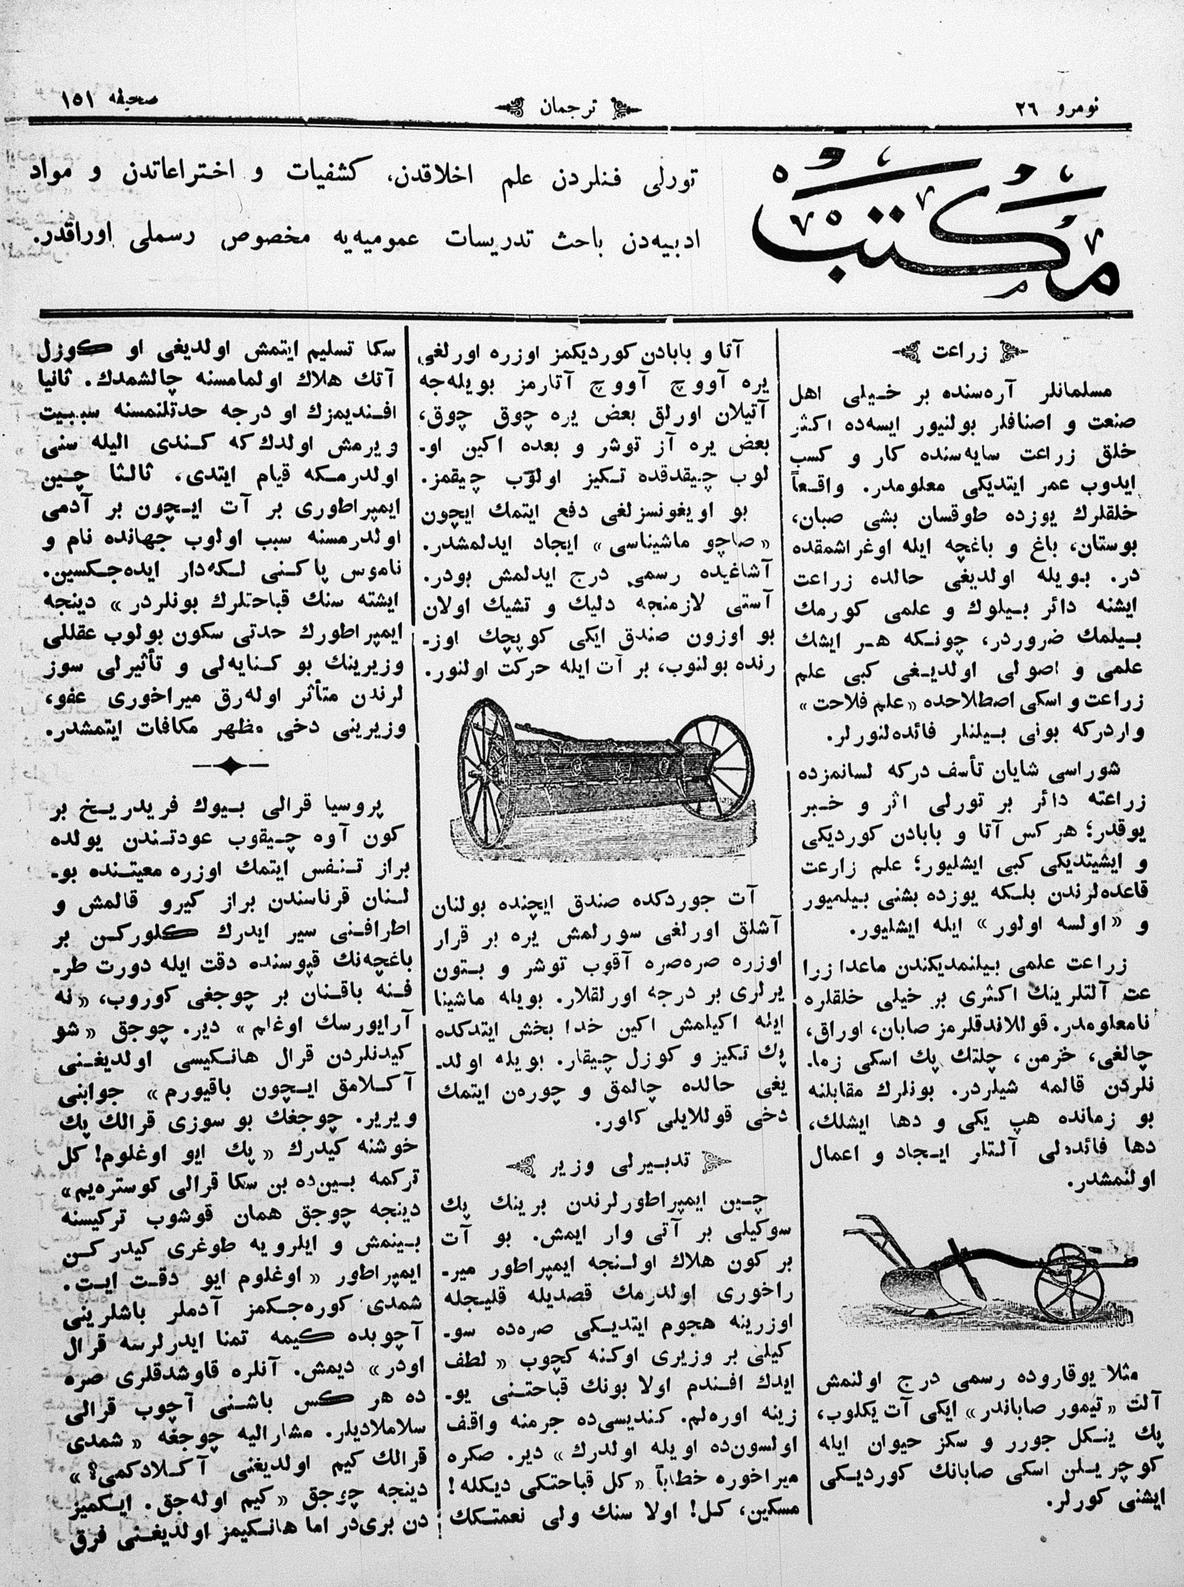 نومرو ٢٦
ترجمان
صحيفه ١٥١
مكتب
تورلى فنلردن علم اخلاقدن، كشفيات و اختراعاتدن و مواد
ادبيه‌دن باحث تدريسات عموميه‌يه مخصوص رسملى اوراقدر.
زراعت
مسلمانلر آره‌سنده بر خيلى اهل
صنعت و اصنافلر بولنيور ايسه‌ده اكثر
خلق زراعت سايه‌سنده كار و كسب
ايدوب عمر ايتديكى معلومدر. واقعاً
خلقلرك يوزده طوقسان بشى صبان،
بوستان، باغ و باغچه ايله اوغراشمقده
در. بويله اولديغى حالده زراعت
ايشنه دائر بيلوك و علمى كورمك
بيلمك ضروردر، چونكه هر ايشك
علمى و اصولى اولديغى كبى علم
زراعت و اسكى اصطلاحده «علم فلاحت»
واردركه بونى بيلنلر فائده‌لنورلر.
شوراسى شايان تأسف دركه لسانمزده
زراعته دائر بر تورلى اثر و خبر
يوقدر؛ هركس آتا و بابادن كورديكى
و ايشيتديكى كبى ايشليور؛ علم زارعت
قاعده‌لرندن بلكه يوزده بشنى بيلميور
و «اولسه اولور» ايله ايشليور.
زراعت علمى بيلنمديكندن ماعدا زرا
عت آلتلرينك اكثرى بر خيلى خلقلره
نامعلومدر. قوللاندقلرمز صابان، اوراق،
چالغى، خزمن، چلتك پك اسكى زما.
نلردن قالمه شيلردر. بونلرك مقابلنه
بو زمانده هپ يكى و دها ايشلك،
دها فائده‌لى آلتلر ايجاد و اعمال
اولنمشدر.
مثلا يوقاروده رسمى درج اولنمش
آلت «تيمور صاباندر» ايكى آت يكلوب،
پك ينكل جورر و سكز حيوان ايله
كوچر يلن اسكى صابانك كورديكى
ايشنى كورلر.
آتا و بابادن كورديكمز اوزره اورلغى
يره آووچ آووچ آتارمز بويله‌جه
آتيلان اورلق بعض يره چوق چوق،
بعض يره آز توشر و بعده اكين او-
لوب چيقدقده تكيز اولوب چيقمز.
بو اويغونسزلغى دفع ايتمك ايچون
«صاچو ماشيناسى» ايجاد ايدلمشدر.
آشاغيده رسمى درج ايدلمش بودر.
آستى لازمنجه دليك و تشيك اولان
بو اوزون صندق ايكى كوپچك اوز-
رنده بولنوب، بر آت ايله حركت اولنور.
آت جوردكده صندق ايچنده بولنان
آشلق اورلغى سورلمش يره بر قرار
اوزره صره‌صره آقوب توشر و بتون
يرلرى بر درجه اورلقلار. بويله ماشينا
ايله اكيلمش اكين خدا بخش ايتدكده
پك تكيز و كوزل چيقار. بويله اولد-
يغى حالده چالمق و چوره‌ن ايتمك
دخى قوللايلى كلور.
تدبيرلى وزير
چين ايمپراطورلرندن برينك پك
سوكيلى بر آتى وار ايمش. بو آت
بر كون هلاك اولنجه ايمپراطور مير-
راخورى اولدرمك قصديله قليجله
اوزرينه هجوم ايتديكى صره‌ده سو-
كيلى بر وزيرى اوكنه كچوب «لطف
ايدك افندم اولا بونك قباحتنى يو-
زينه اوره‌لم. كنديسى‌ده جرمنه واقف
اولسون‌ده اويله اولدرك» دير. صكره
ميراخوره خطاباً «كل قباحتكى ديكله!
مسكين، كل! اولا سنك ولى نعمتكك
سكا تسليم ايتمش اولديغى او كوزل
آتك هلاك اولمامسنه چالشمدك. ثانيا
افنديمزك او درجه حدتلنمسنه سببيت
ويرمش اولدك‌كه كندى اليله سنى
اولدرمكه قيام ايتدى، ثالثا چين
ايمپراطورى بر آت ايچون بر آدمى
اولدرمسنه سبب اولوب جهانده نام و
ناموس پاكنى لكه‌دار ايده‌جكسين.
ايشته سنك قباحتلرك بونلردر» دينجه
ايمپراطورك حدتى سكون بولوب عقللى
وزيرينك بو كنايه‌لى و تأثيرلى سوز
لرندن متأثر اوله‌رق ميراخورى عفو،
وزيرينى دخى مظهر مكافات ايتمشدر.
پروسيا قرالى بيوك فريدريخ بر
كون آوه چيقوب عودتندن يولده
براز تنفس ايتمك اوزره معيتنده بو-
لنان قرناسندن براز كيرو قالمش و
اطرافنى سير ايدرك كلوركن بر
باغچه‌نك قپوسنده دقت ايله دورت طر-
فنه باقنان بر چوجغى كوروب، «نه
آرايورسك اوغلم» دير. چوجق «شو
كيدنلردن قرال هانكيسى اولديغنى
آكلامق ايچون باقيورم» جوابنى
ويرير. چوجغك بو سوزى قرالك پك
خوشنه كيدرك «پك ايو اوغلوم! كل
تركمه بين‌ده بن سكا قرالى كوستره‌يم»
دينجه چوجق همان قوشوب تركيسنه
بينمش و ايلرويه طوغرى كيدركن
ايمپراطور «اوغلوم ايو دقت ايت.
شمدى كوره‌جكمز آدملر باشلرينى
آچوبده كيمه تمنا ايدرلرسه قرال
اودر» ديمش. آنلره قاوشدقلرى صره
ده هر كس باشنى آچوب قرالى
سلاملاديلر. مشاراليه چوجغه «شمدى
قرالك كيم اولديغنى آكلادكمى؟»
دينجه چوجق «كيم اوله‌جق. ايكميز
دن برى‌در اما هانكيمز اولديغنى فرق